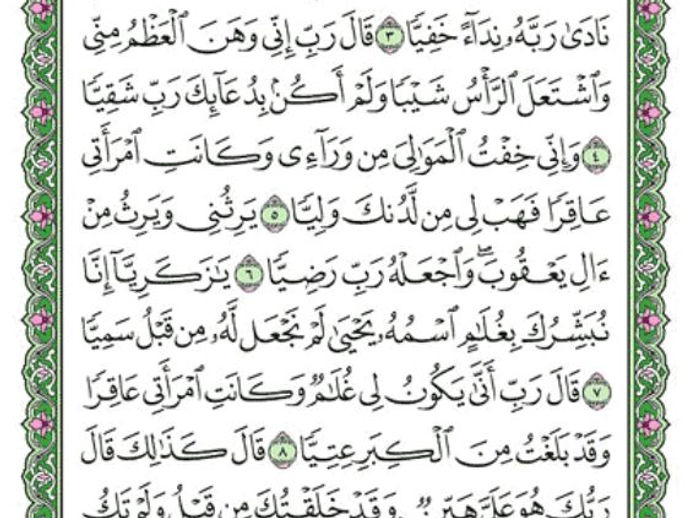 نَادَىٰ رَبَّهُۥ نِدَآءً خَفِيًّا ٣ قَالَ رَبِّ إِنِّي وَهَنَ ٱلْعَظْمُ مِنِّي
وَٱشْتَعَلَ ٱلرَّأْسُ شَيْبًا وَلَمْ أَكُنۢ بِدُعَآئِكَ رَبِّ شَقِيًّا
٤ وَإِنِّي خِفْتُ ٱلْمَوَٰلِيَ مِن وَرَآءِي وَكَانَتِ ٱمْرَأَتِي
عَاقِرًا فَهَبْ لِي مِن لَّدُنكَ وَلِيًّا ٥ يَرِثُنِي وَيَرِثُ مِنْ
ءَالِ يَعْقُوبَۖ وَٱجْعَلْهُ رَبِّ رَضِيًّا ٦ يَٰزَكَرِيَّآ إِنَّا
نُبَشِّرُكَ بِغُلَٰمٍ ٱسْمُهُۥ يَحْيَىٰ لَمْ نَجْعَل لَّهُۥ مِن قَبْلُ سَمِيًّا
٧ قَالَ رَبِّ أَنَّىٰ يَكُونُ لِي غُلَٰمٌ وَكَانَتِ ٱمْرَأَتِي عَاقِرًا
وَقَدْ بَلَغْتُ مِنَ ٱلْكِبَرِ عِتِيًّا ٨ قَالَ كَذَٰلِكَ قَالَ
رَبُّكَ هُوَ عَلَيَّ هَيِّنٌ وَقَدْ خَلَقْتُكَ مِن قَبْلُ وَلَمْ تَكُ